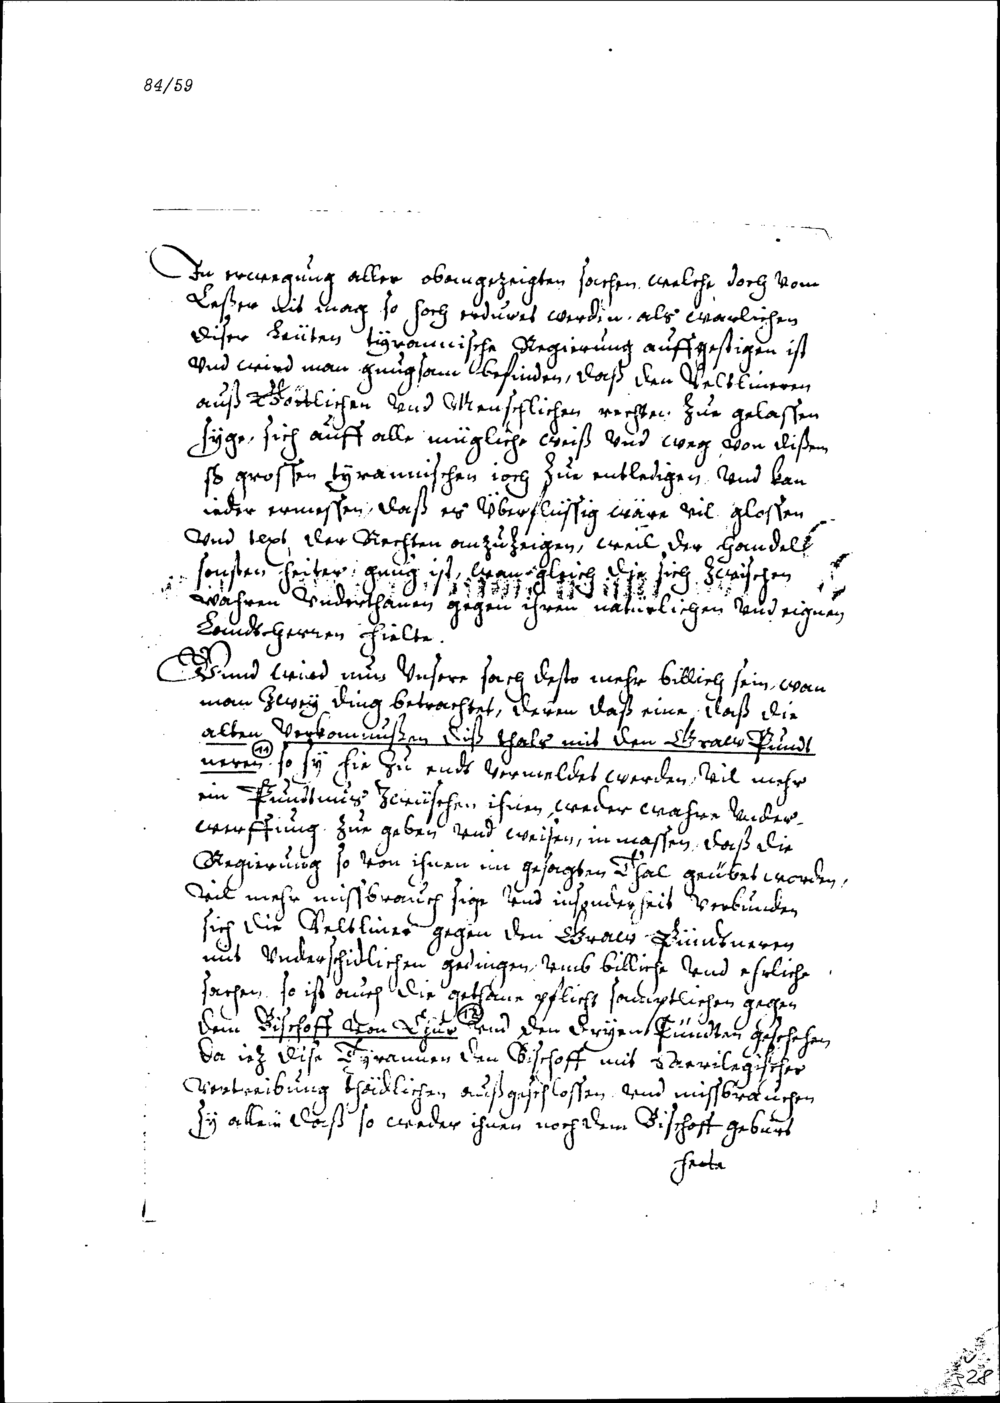 84/59
In erwegung aller obangezeigten sachen, welche doch vom
Leßer nit mag so hoch erduret werden, als warlichen
diser Leüten tÿrannische Regierung auffgestigen ist
Vnd wird man gnugsam befinden, daß den Veltlineren
auß Göttlichen Vnd Menschlichen rechten Zue gelassen
sÿge, sich auff alle mügliche weiß Vnd weg von dißem
so grossen tÿrannischen ioch Zue entledigen Vnd kan
ieder ermessen, daß es Vberflüssig wäre vil glossen
Vnd text der Rechten anzuzeigen, weil der Handell
sonsten heiter gnug ist, wan gleich die sich Zwischen
wahren Vnderthanen gegen ihren natürlichen Vnd eignen
Landtsherren hielte.
Vnnd wird nun Vnsere sach desto mehr billich sein, wan
man Zweÿ ding betrachtet, deren daß eine, daß die
alten Verkomnußen diß thals mit den Graw Pündt
neren 11 so sÿ hie Zu endt Vermeldet werden, Vil mehr
ein Pündtnus Zwüschen ihnen, weder wahre Vnder-
werffung Zue geben Vnd weisen, in massen daß die
Regierung so von ihnen im gesagten Thal geübet worden,
Vil mehr missbrauch sige Vnd insonderheit Verbunden
sich die Veltliner gegen den Graw Pündtneren
mit Vnderschidlichen gedingen, vmb billiche Vnd ehrliche
sachen, so ist auch die gethane pflicht samptlichen gegen
dem Bischoff von Chur 12 Vnd den dryen Pündten geschehen
da iez dise Tÿrannen den Bischoff mit sacrilegischer
Vertreibung thädlichen außgeschlossen Vnd missbrauchen
sÿ allein daß so weder ihnen noch dem Bischoff gebürt
hette
28